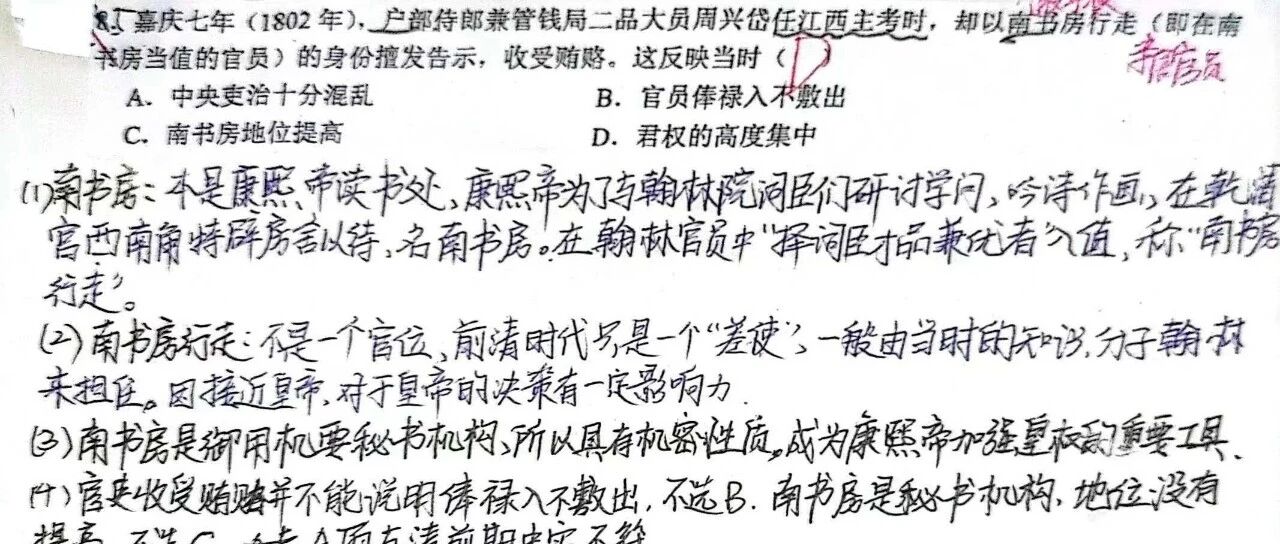 8.嘉庆七年（1802年），户部侍郎兼管钱局二品大员周兴岱任江西主考时，却以南书房行走（即在南
书房当值的官员）的身份擅发告示，收受贿赂。这反映当时（D）
亲信官员
A．中央吏治十分混乱 B．官员俸禄入不敷出
C．南书房地位提高 D．君权的高度集中
(1)南书房：本是康熙帝读书处、康熙帝为了与翰林院词臣们研讨学问、吟诗作画、在乾清
宫西南角特辟房舍以待、名南书房。在翰林官员中"择词臣才品兼优者"入值，称"南书房
行走"。
(2)南书房行走：不是一个官位、前清时代只是一个"差使"、一般由当时的知识分子翰林
来担任。因接近皇帝，对于皇帝的决策有一定影响力.
(3)南书房是御用机要秘书机构、所以具有机密性质。成为康熙帝加强皇权的重要工具.
(4)官吏收受贿赂并不能说明俸禄入不敷出，不选B. 南书房是秘书机构，地位没有
提高，不选C. A项与清前期史实不符